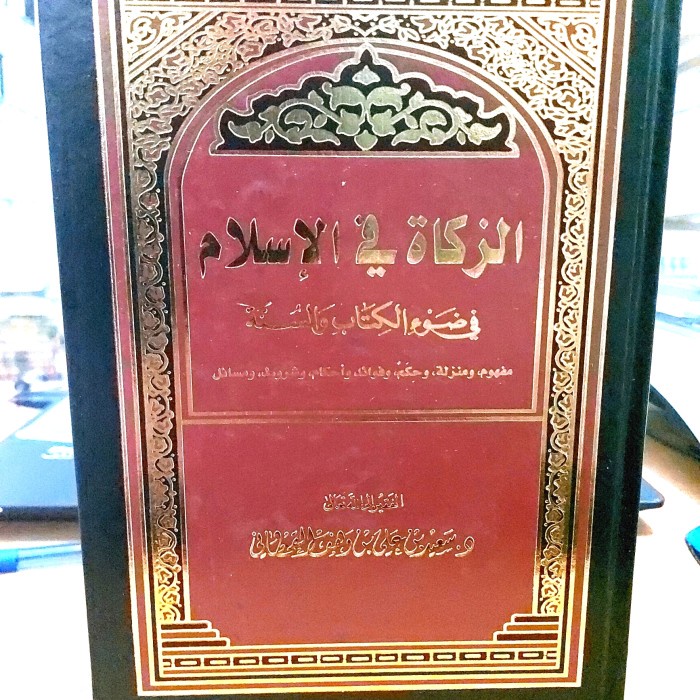 الزكاة في الإسلام
في ضوء الكتاب والسنة
مفهوم، ومنزلة، وحكم، وفوائد، وأحكام، وشروط، ومسائل
الفقير إلى الله تعالى
د. سعيد بن علي بن وهف القحطاني